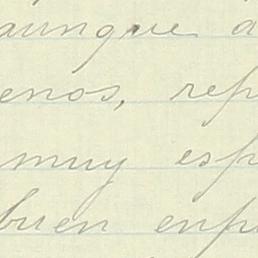 aunque a
enos, rep
muy esp
buen enfe